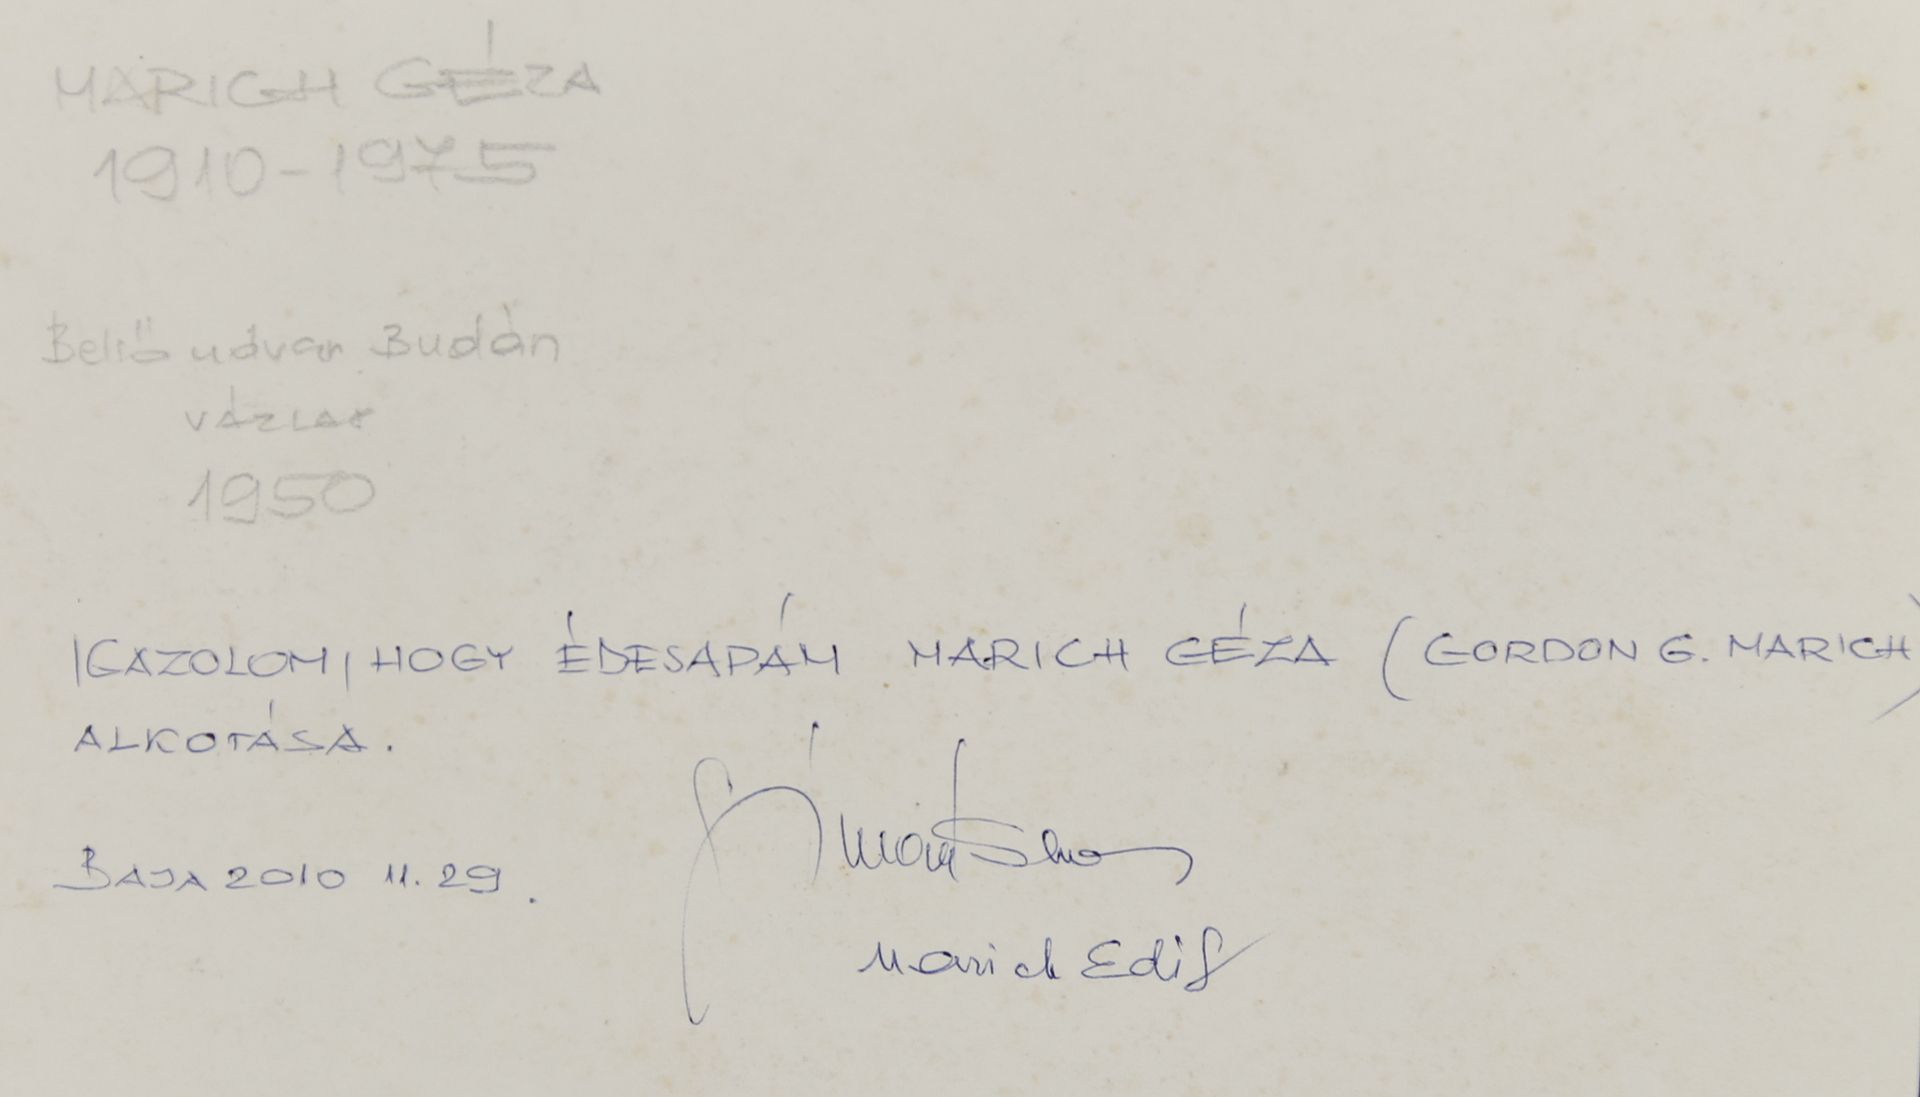 MARICH GÉZA
1910-1975
Belső udvar Budán
VÁZLAT
1950
IGAZOLOM, HOGY ÉDESAPÁM MARICH GÉZA (GORDON G. MARICH)
ALKOTÁSA.
BAJA 2010 11. 29.
Marich Edit